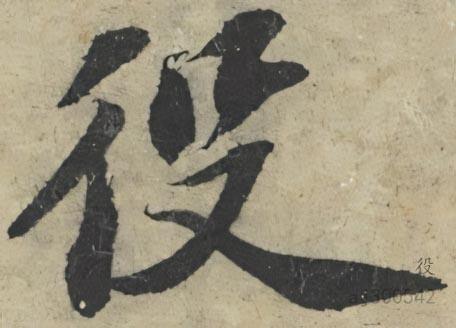 役
役
ag300542